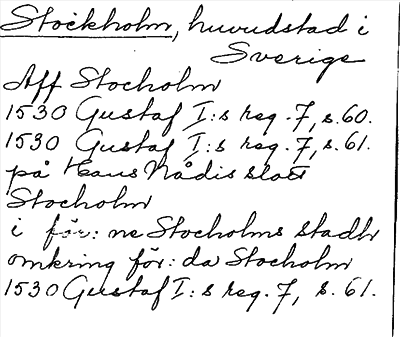 Stockholm, huvudstad i
Sverige
Aff Stocholm
1530 Gustaf I:s reg. 7, s. 60.
1530 Gustaf I:s reg. 7, s. 61.
på Hans Nådis slott
Stocholm
i för: ne Stocholms stadh
omkring för: da Stocholm
1530 Gustaf I:s reg. 7, s. 61.